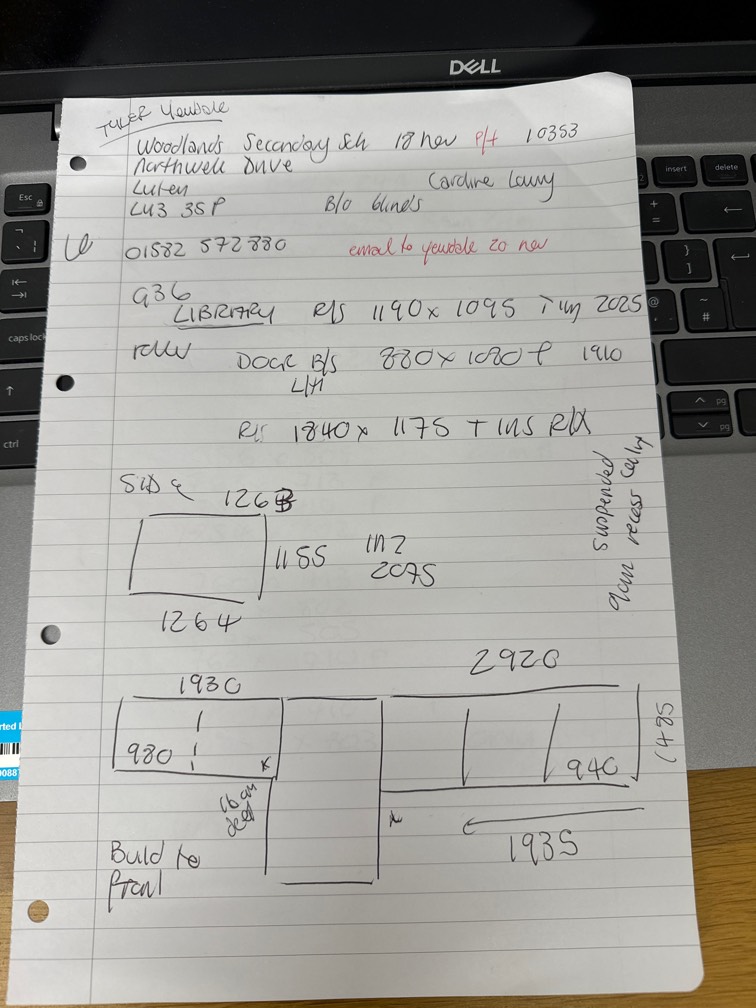 DELL
TYLER Yewdale
Woodlands Secondary Sch 18 nov P/f 10353
Northwell Drive
Luton Caroline Lowry
LU3 3SP B/O blinds
01582 572880 email to yewdale 20 nov
G36
LIBRARY R/S 1190 x 1095 2025
DOOR B/S 880 x 1080 1910
L/H
R/S 1840 x 1175 + INS
suspended
9cm recess
SIDE 1263
1155 IN 2
2075
1264
2920
1930
1485
980 x 940
16cm
deep
x
1935
Build to
front
Esc
caps lock
ctrl
insert
delete
pg
pg